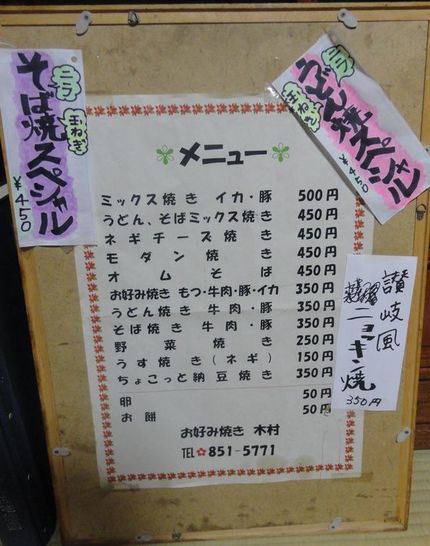 そば焼スペシャル
玉ねぎ
¥450
うどん焼スペシャル
玉ねぎ
¥450
メニュー
ミックス焼き イカ・豚 500円
うどん、そばミックス焼き 450円
ネギチーズ焼き 450円
モダン焼き 450円
オムそば 450円
お好み焼き もつ・牛肉・豚・イカ 350円
うどん焼き 牛肉・豚 350円
そば焼き 牛肉・豚 350円
野菜焼き 250円
うす焼き(ネギ) 150円
ちょこっと納豆焼き 350円
卵 50円
お餅 50円
お好み焼き 木村
TEL 851-5771
讃岐風
ニョッキン焼
350円